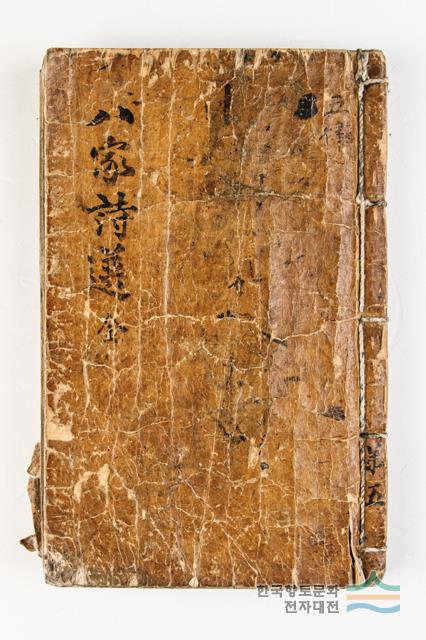 八家詩選 全
五律
五
한국향토문화
전자대전